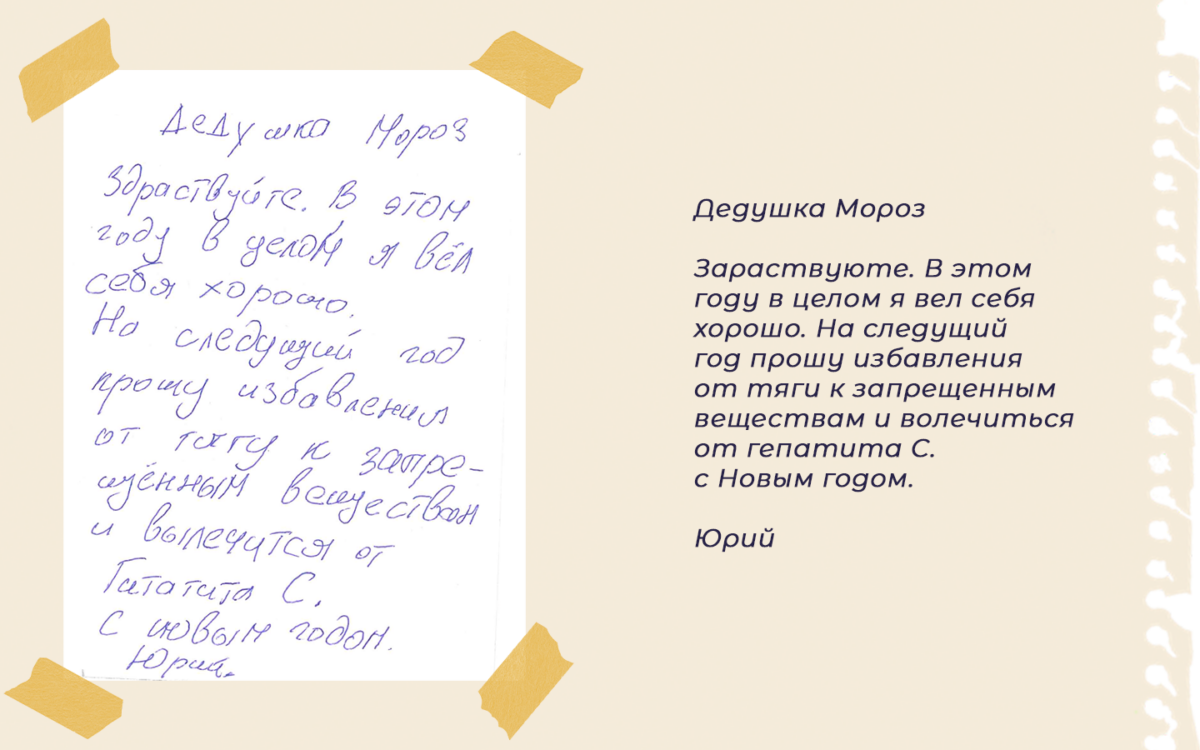 Дедушка Мороз
Здраствуйте. В этом
году в целом я вёл
себя хорошо.
На следущий год
прошу избавления
от тягу к запре-
щённым веществам
и вылечится от
Гитатита С.
С новым годом.
Юрий.
Дедушка Мороз
Зараствуюте. В этом
году в целом я вел себя
хорошо. На следущий
год прошу избавления
от тяги к запрещенным
веществам и волечиться
от гепатита С.
с Новым годом.
Юрий